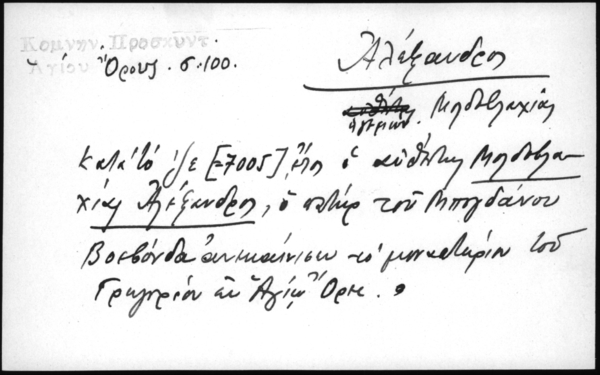 Κομνην. Προσκυντ.
Ἁγίου Ὄρους. σ. 100.
Ἀλέξανδρος
αὐθέντης
ἡγεμών Μολδοβλαχίας
Κατὰ τὸ ζε [=7005] ἔτος ὁ αὐθέντης Μολδοβλα-
χίας Ἀλέξανδρος, ὁ πατὴρ τοῦ Μπογδάνου
Βοεβόνδα ἀνεκαίνισεν τὸ μοναστήριον τοῦ
Γρηγορίου ἐν Ἁγίῳ Ὄρει.